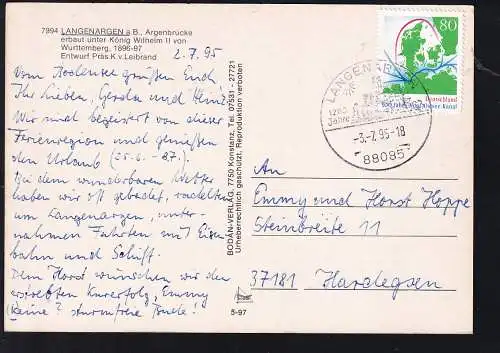 7994 LANGENARGEN a.B., Argenbrücke
erbaut unter König Wilhelm II von
Württemberg, 1896-97
Entwurf Präs K.v.Leibrand
2.7.95
Vom Bodensee grüßen Euch
Ihr Lieben, Gerda und Heinz.
Wir sind begeistert von dieser
Ferienregion und genießen
den Urlaub (25.6. - 8.7.).
Bei dem wunderbaren Wetter
haben wir oft gebadet, radelten
um Langenargen, unter-
nahmen Fahrten mit Eisen-
bahn und Schiff.
Dem Horst wünschen wir den
erstrebten Kurerfolg, Emmy
(keine?) sturmfreie Bude!
BODAN-VERLAG, 7750 Konstanz, Tel. 07531 - 27721
Urheberrechtlich geschützt, Reproduktion verboten
5-97
80
Deutschland
LANGENARGEN
Jahre
-3.-7.95-18
88085
An
Emmy und Horst Hoppe
Steinbreite 11
37181 Hardegsen